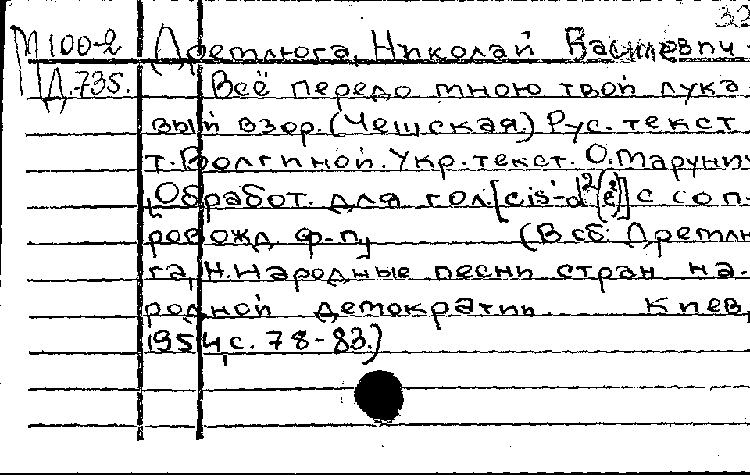 32
М100-2 Дремлюга, Николай Васильевич.
Д.735. Всё передо мною твой лука-
вый взор. (Чешская.) Рус. текст
Т. Волгиной. Укр. текст. О. Марунич
[Обработ. для гол. [cis'-d²(e²)] с соп-
ровожд. ф-п. (В сб: Дремлю-
га, Н. Народные песни стран на-
родной демократии. Киев,
1954, с. 78-83.)